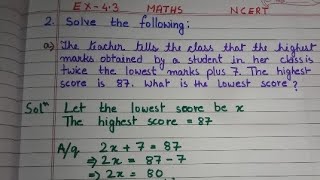 EX-4.3 MATHS NCERT
2. Solve the following:
a) The teacher tells the class that the highest
marks obtained by a student in her class is
twice the lowest marks plus 7. The highest
score is 87. What is the lowest score?
Solⁿ Let the lowest score be x
The highest score = 87
A/q 2x + 7 = 87
⇒ 2x = 87 - 7
⇒ 2x = 80